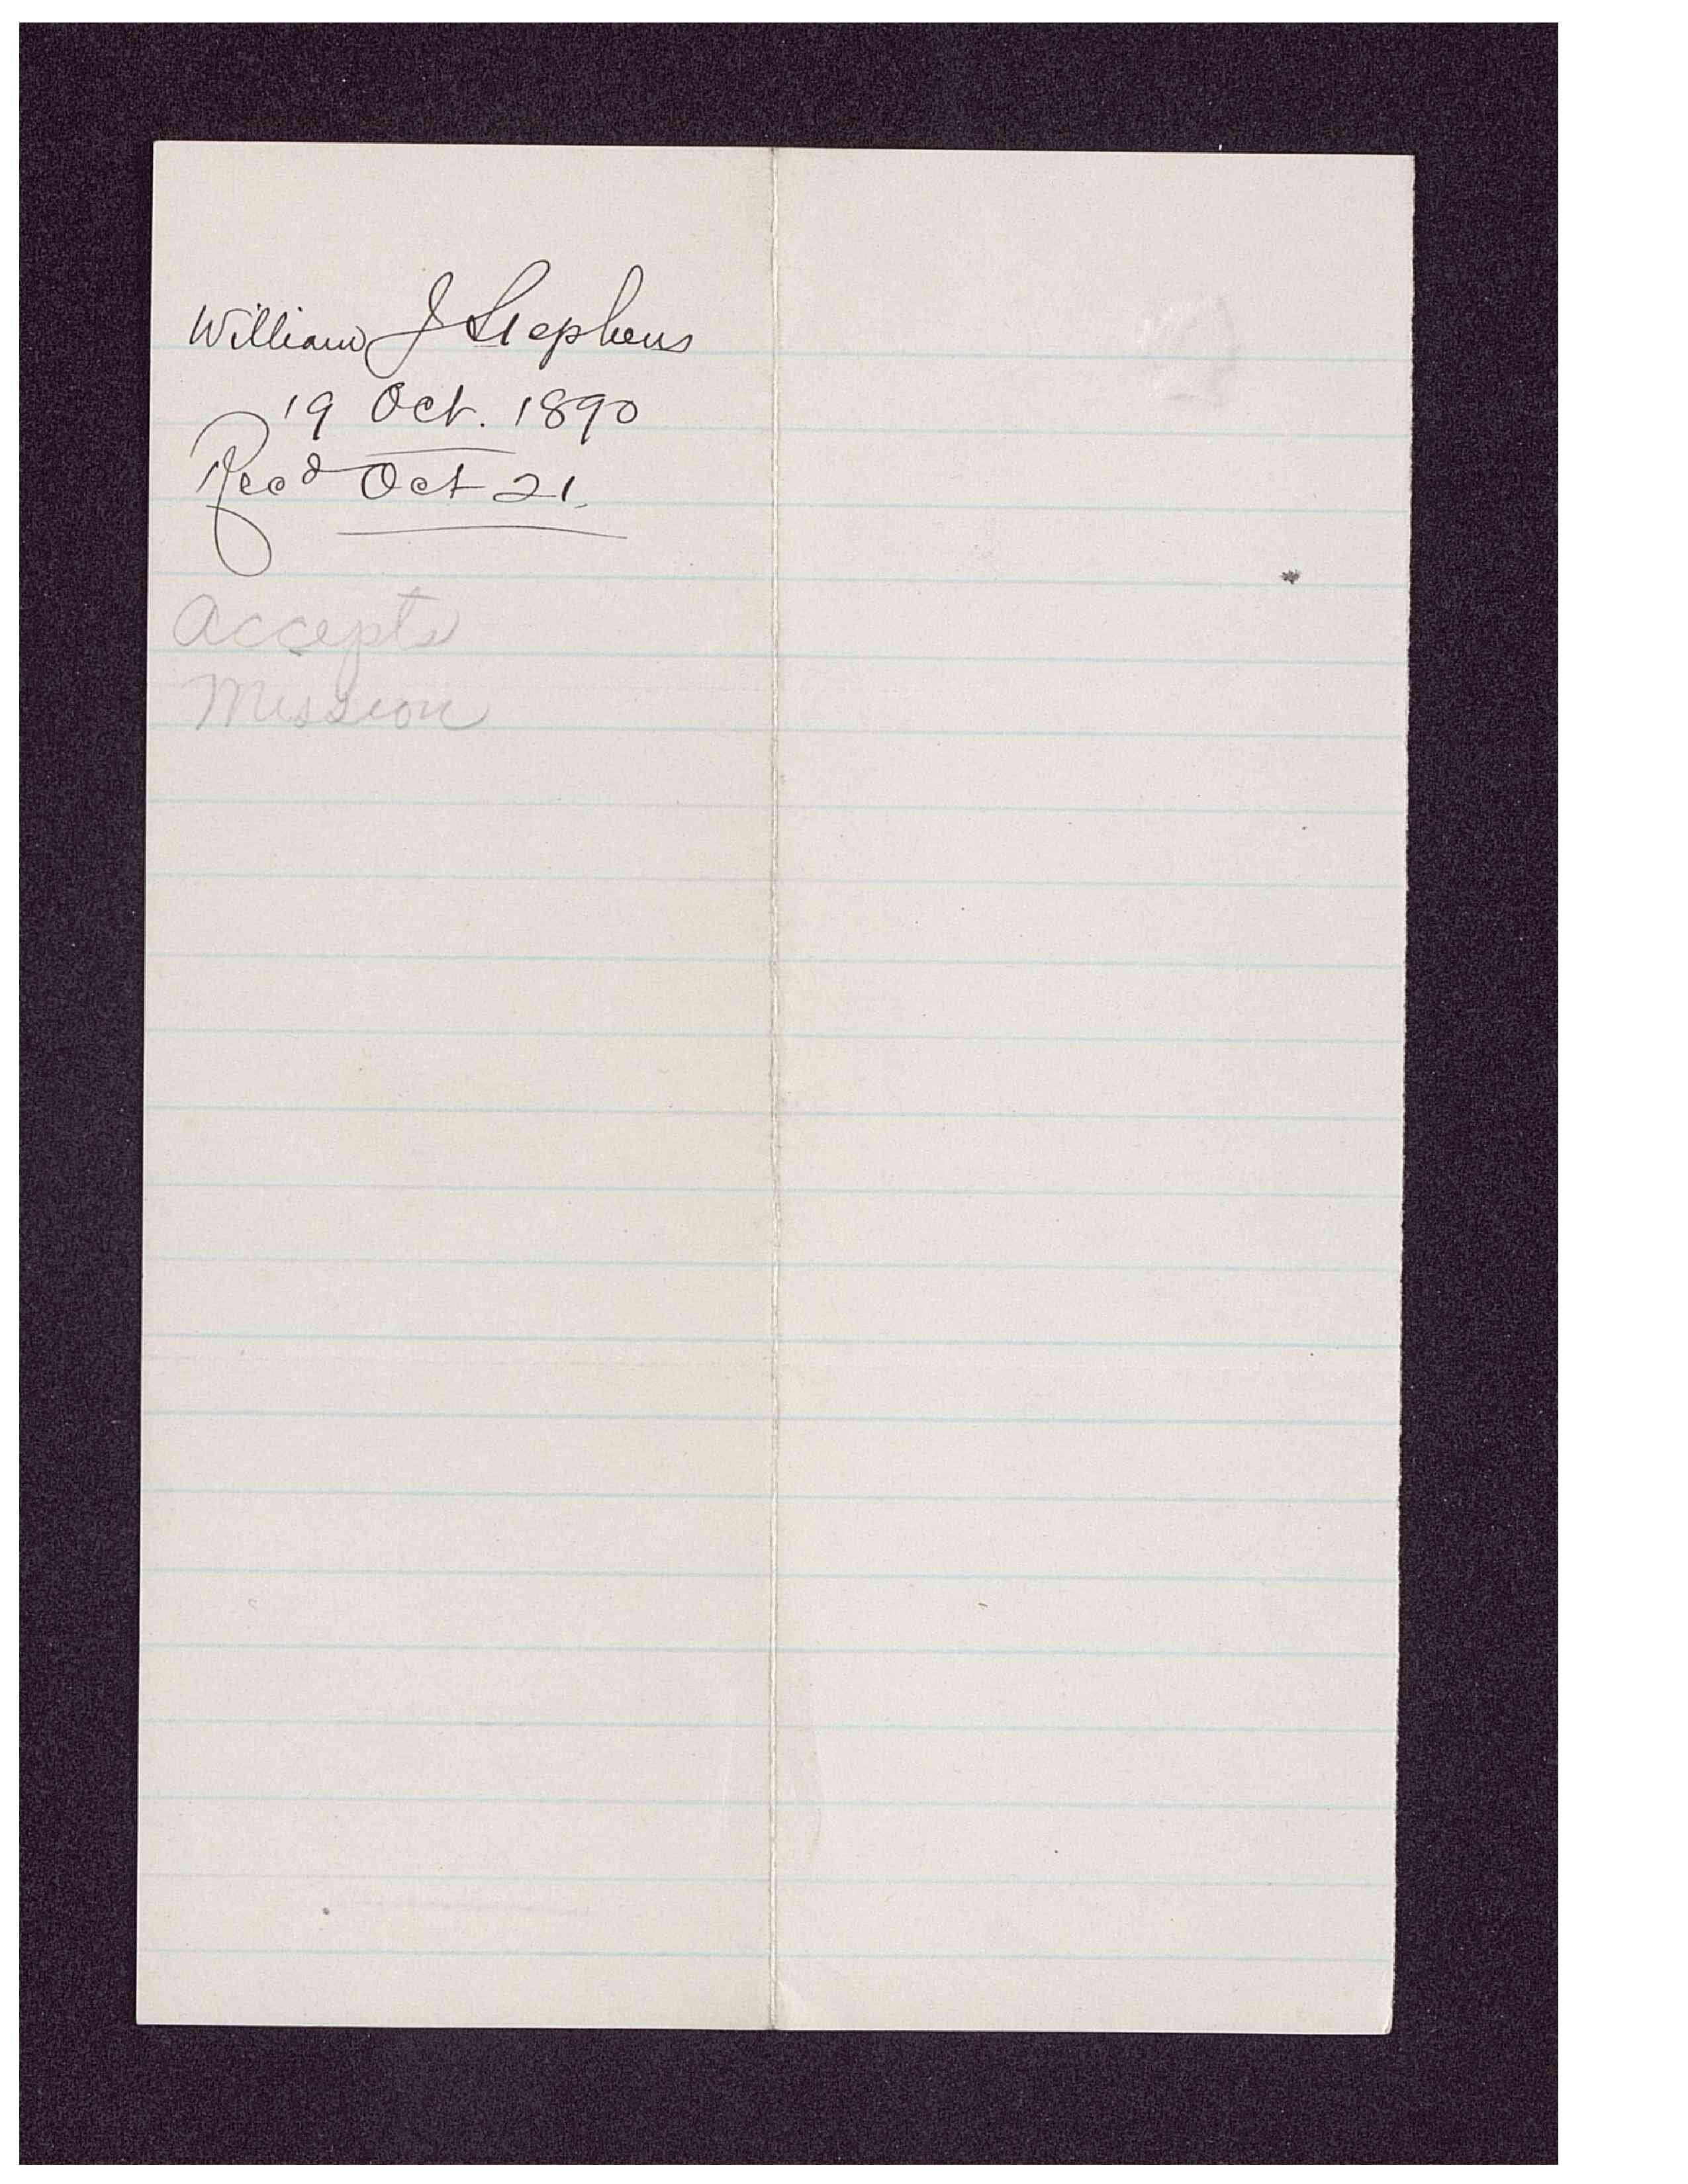 William J Stephens
19 Oct. 1890
Recd Oct 21.
Accepts
Mission